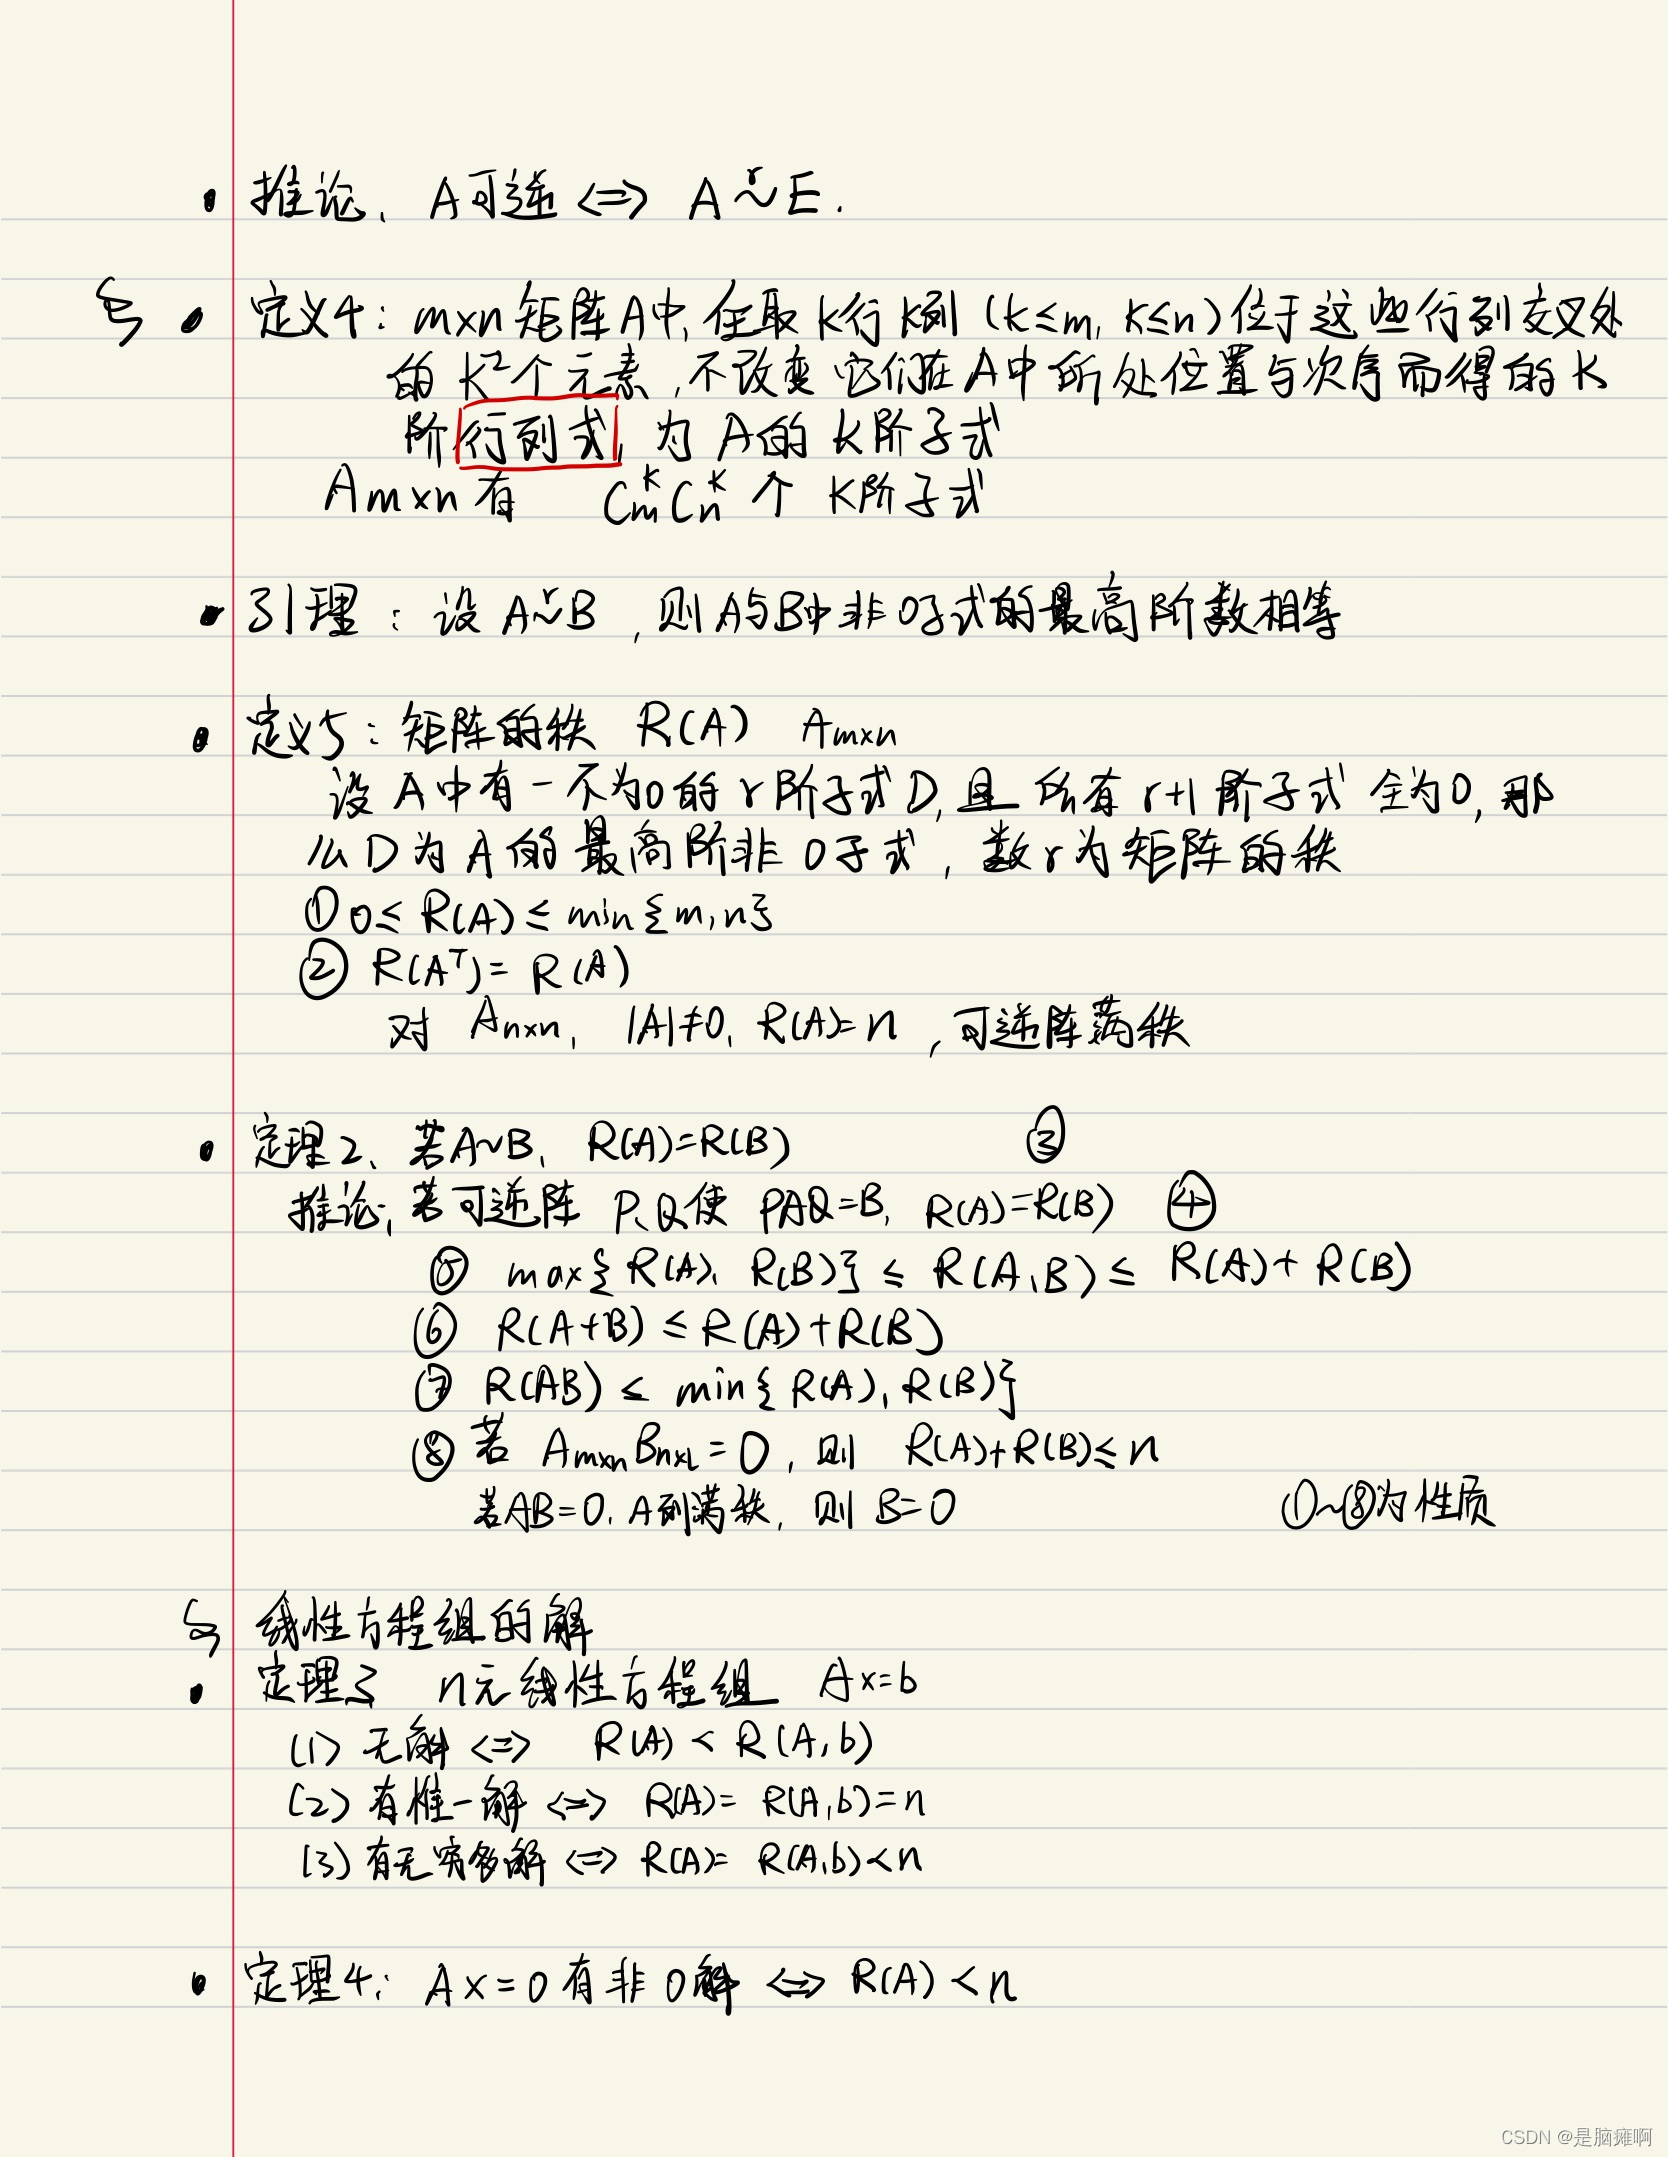 推论、A可逆 <=> A ~r E.
§ 定义4: m×n 矩阵A中, 任取 k行 k列 (k≤m, k≤n) 位于这些行列交叉处
的 k²个元素, 不改变它们在A中所处位置与次序而得的 k
阶行列式, 为 A的 k阶子式
Am×n 有 C_m^k C_n^k 个 k阶子式
引理: 设 A ~r B, 则A与B中非0子式的最高阶数相等
定义5: 矩阵的秩 R(A) Am×n
设A中有一不为0的r阶子式D, 且所有r+1阶子式全为0, 那
么D为A的最高阶非0子式, 数r为矩阵的秩
① 0≤R(A)≤min{m,n}
② R(A^T)=R(A)
对 An×n, |A|≠0, R(A)=n, 可逆阵满秩
定理2、若A~B, R(A)=R(B) ③
推论, 若可逆阵 P、Q使 PAQ=B, R(A)=R(B) ④
⑤ max{R(A), R(B)} ≤ R(A,B) ≤ R(A)+R(B)
⑥ R(A+B) ≤ R(A)+R(B)
⑦ R(AB) ≤ min{R(A), R(B)}
⑧ 若 Am×n Bn×l=0, 则 R(A)+R(B)≤n
若AB=0, A列满秩, 则 B=0 ①~⑧为性质
§ 线性方程组的解
定理3 n元线性方程组 Ax=b
(1) 无解 <=> R(A) < R(A,b)
(2) 有惟一解 <=> R(A)= R(A,b)=n
(3) 有无穷多解 <=> R(A)= R(A,b)<n
定理4: Ax=0有非0解 <=> R(A)<n
CSDN @是脑瘫啊